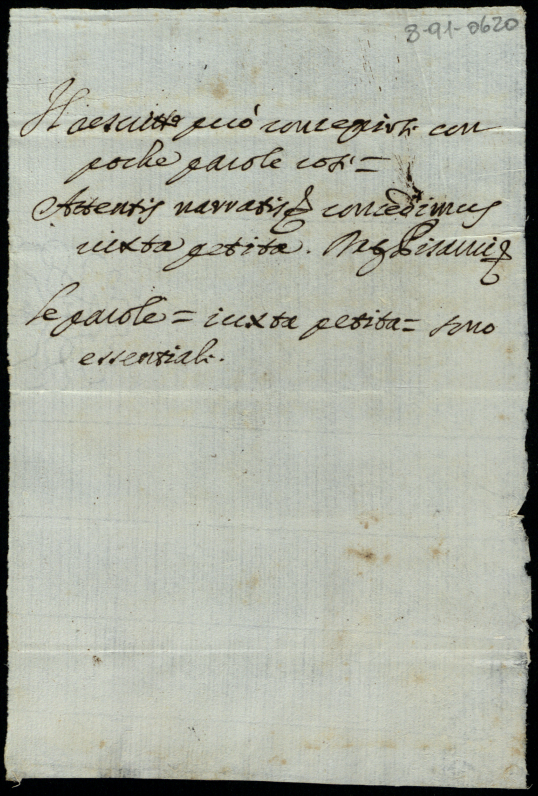 8-91-0620
Il rescritto può concepirsi con
poche parole così =
Attentis narratis concedimus
iuxta petita. Pisauri
Le parole = iuxta petita = sono
essentiali.